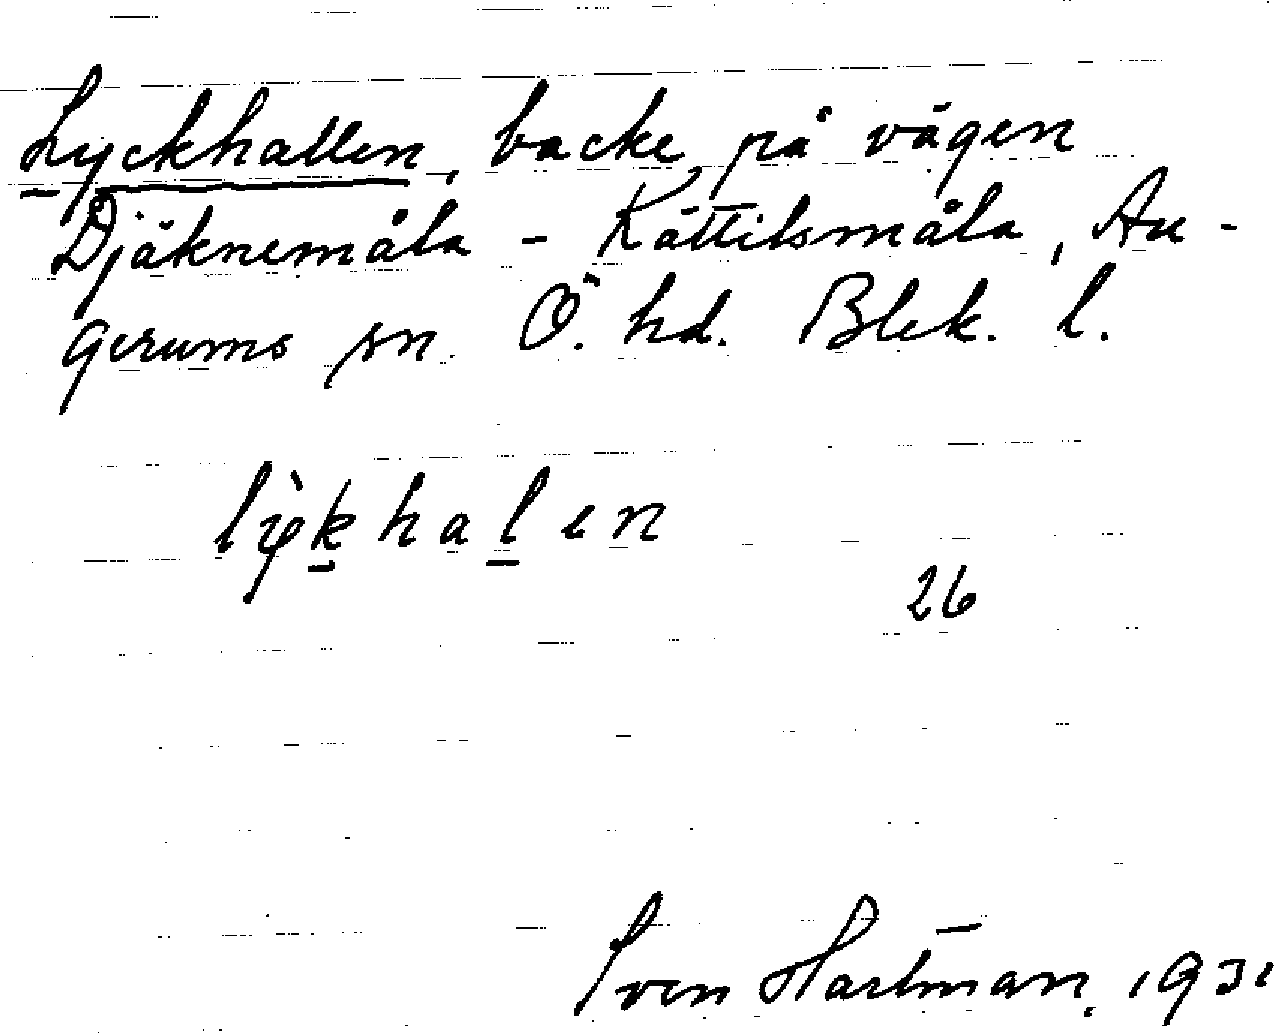 Lyckhallen, backe på vägen
Djäknemåla - Kättilsmåla, Au-
gerums sn. Ö. hd. Blek. l.
lỳkhalen
26
Sven Hartman, 1931